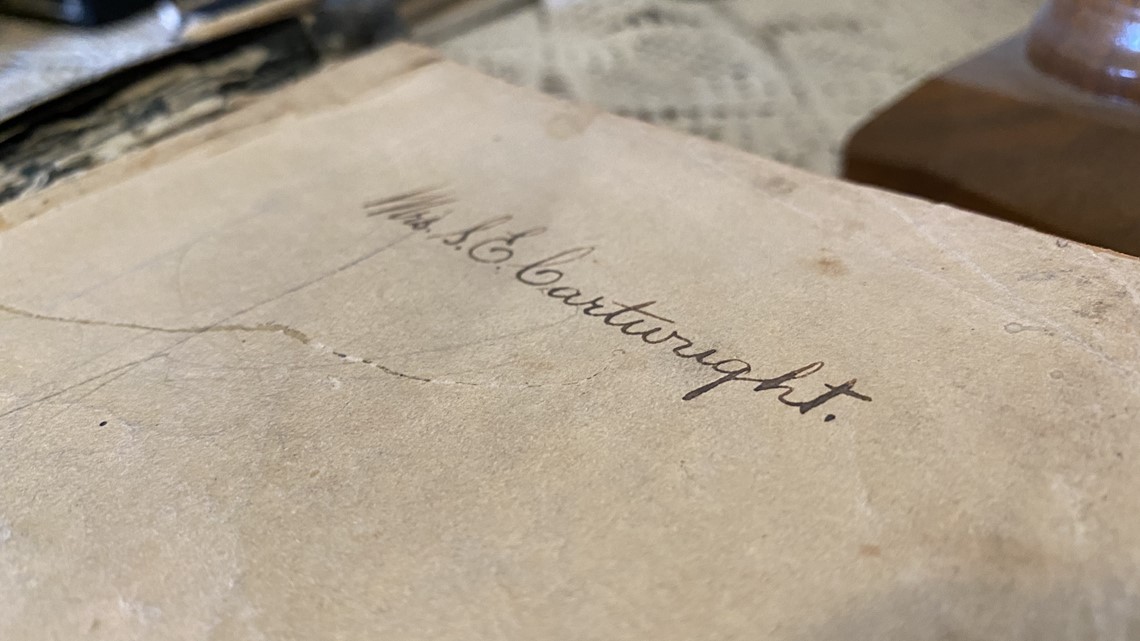 Mrs. S. E. Cartwright.